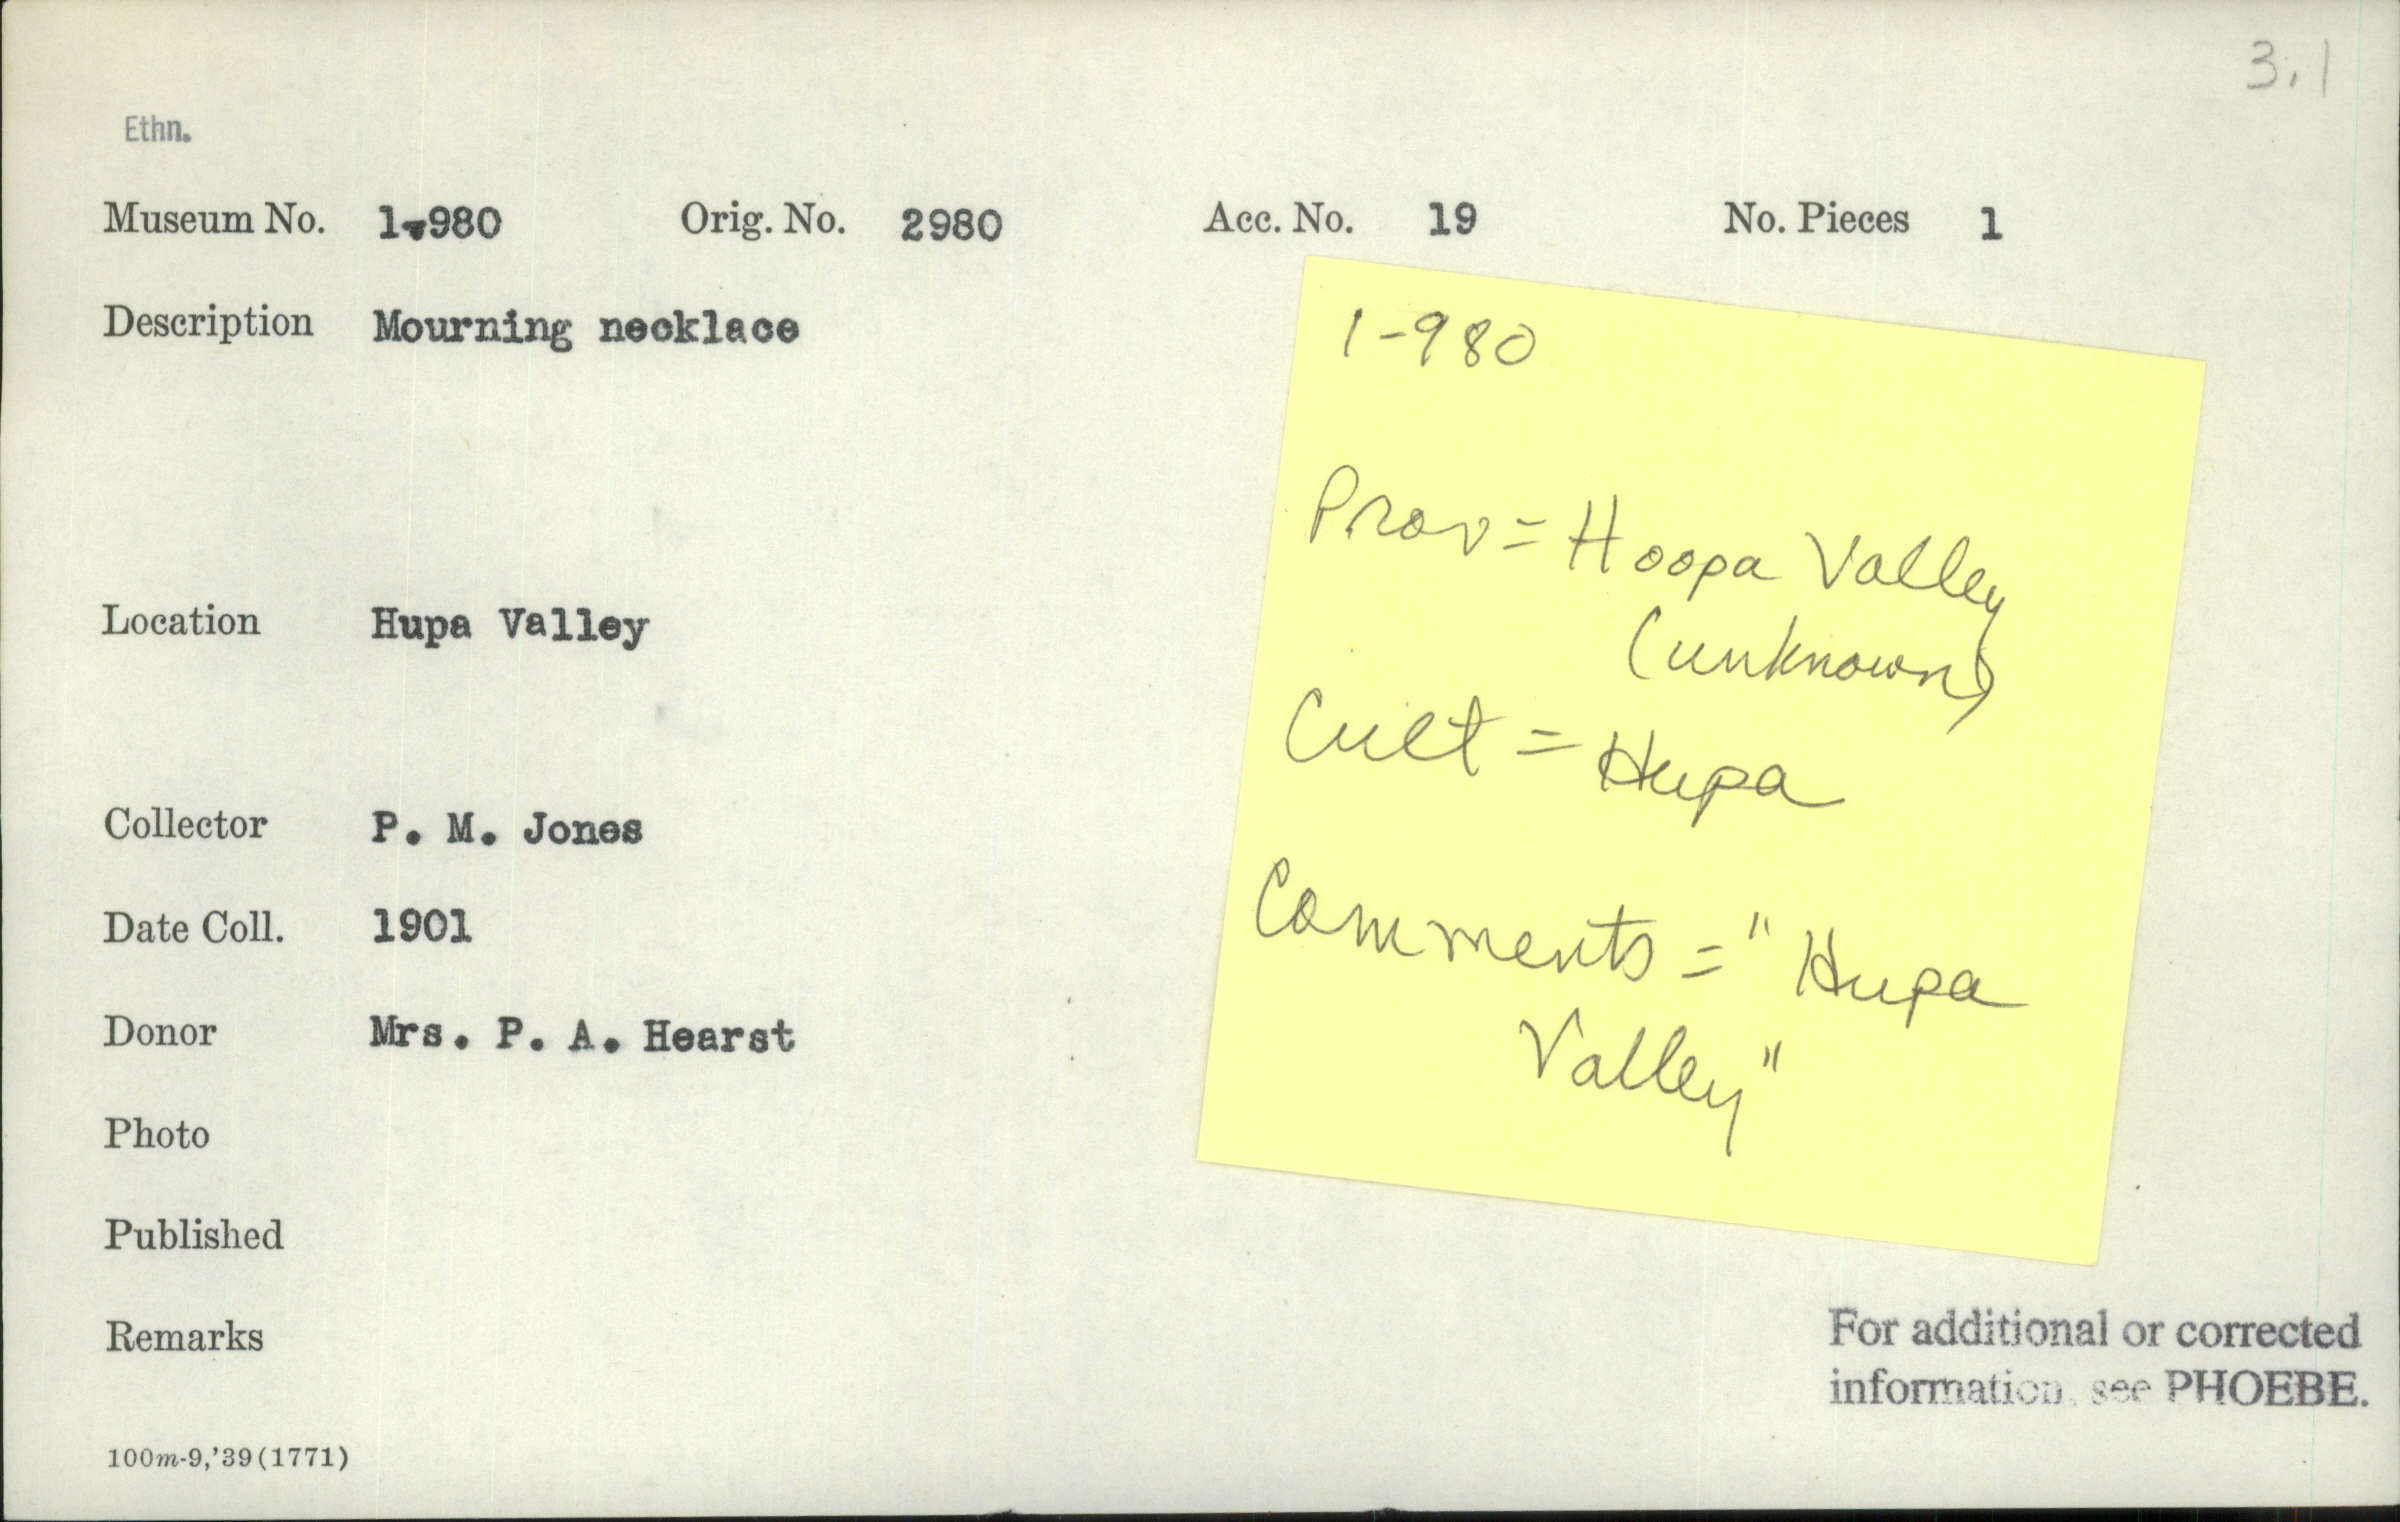 3.1
Ethn.
Museum No. 1-980 Orig. No. 2980 Acc. No. 19 No. Pieces 1
Description Mourning necklace
Location Hupa Valley
Collector P. M. Jones
Date Coll. 1901
Donor Mrs. P. A. Hearst
Photo
Published
Remarks
100m-9,'39(1771)
1-980
Prov = Hoopa Valley
(unknown)
Cult = Hupa
Comments = "Hupa
Valley"
For additional or corrected
information, see PHOEBE.